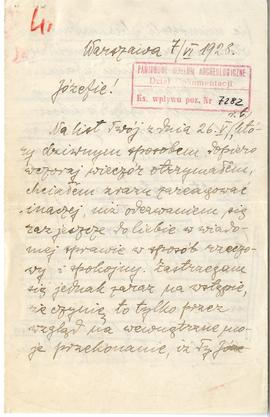 4.
Warszawa 7/VI 1928.
PAŃSTWOWE MUZEUM ARCHEOLOGICZNE
Dział Dokumentacji
Ks. wpływu poz. Nr 7282
Józefie!
Na list Twój z dnia 26.V, któ-
ry dziwnym sposobem dopiero
wczoraj wieczór otrzymałem,
miałem zaraz zareagować
inaczej, niż odezwaniem się
raz jeszcze do Ciebie w wiado-
mej sprawie w sposób rzeczo-
wy i spokojny. Zastrzegam
się jednak zaraz na wstępie,
że czynię to tylko przez
wzgląd na wewnętrzne mo-
je przekonanie, iż Ty